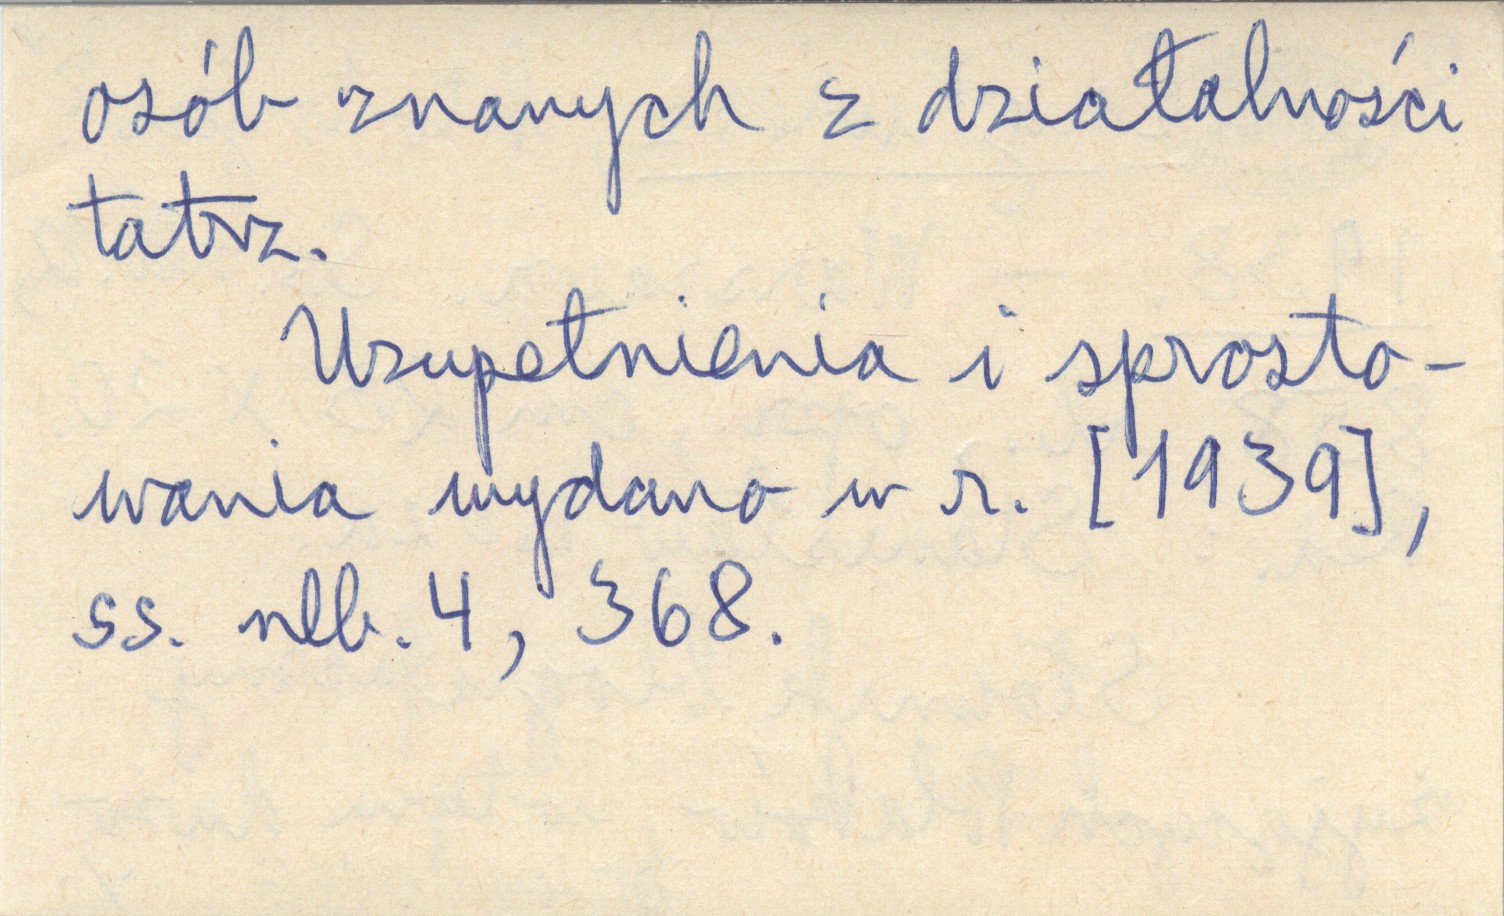 osób znanych z działalności
tatrz.
Uzupełnienia i sprosto-
wania wydano w r. [1939],
ss. nlb. 4, 368.